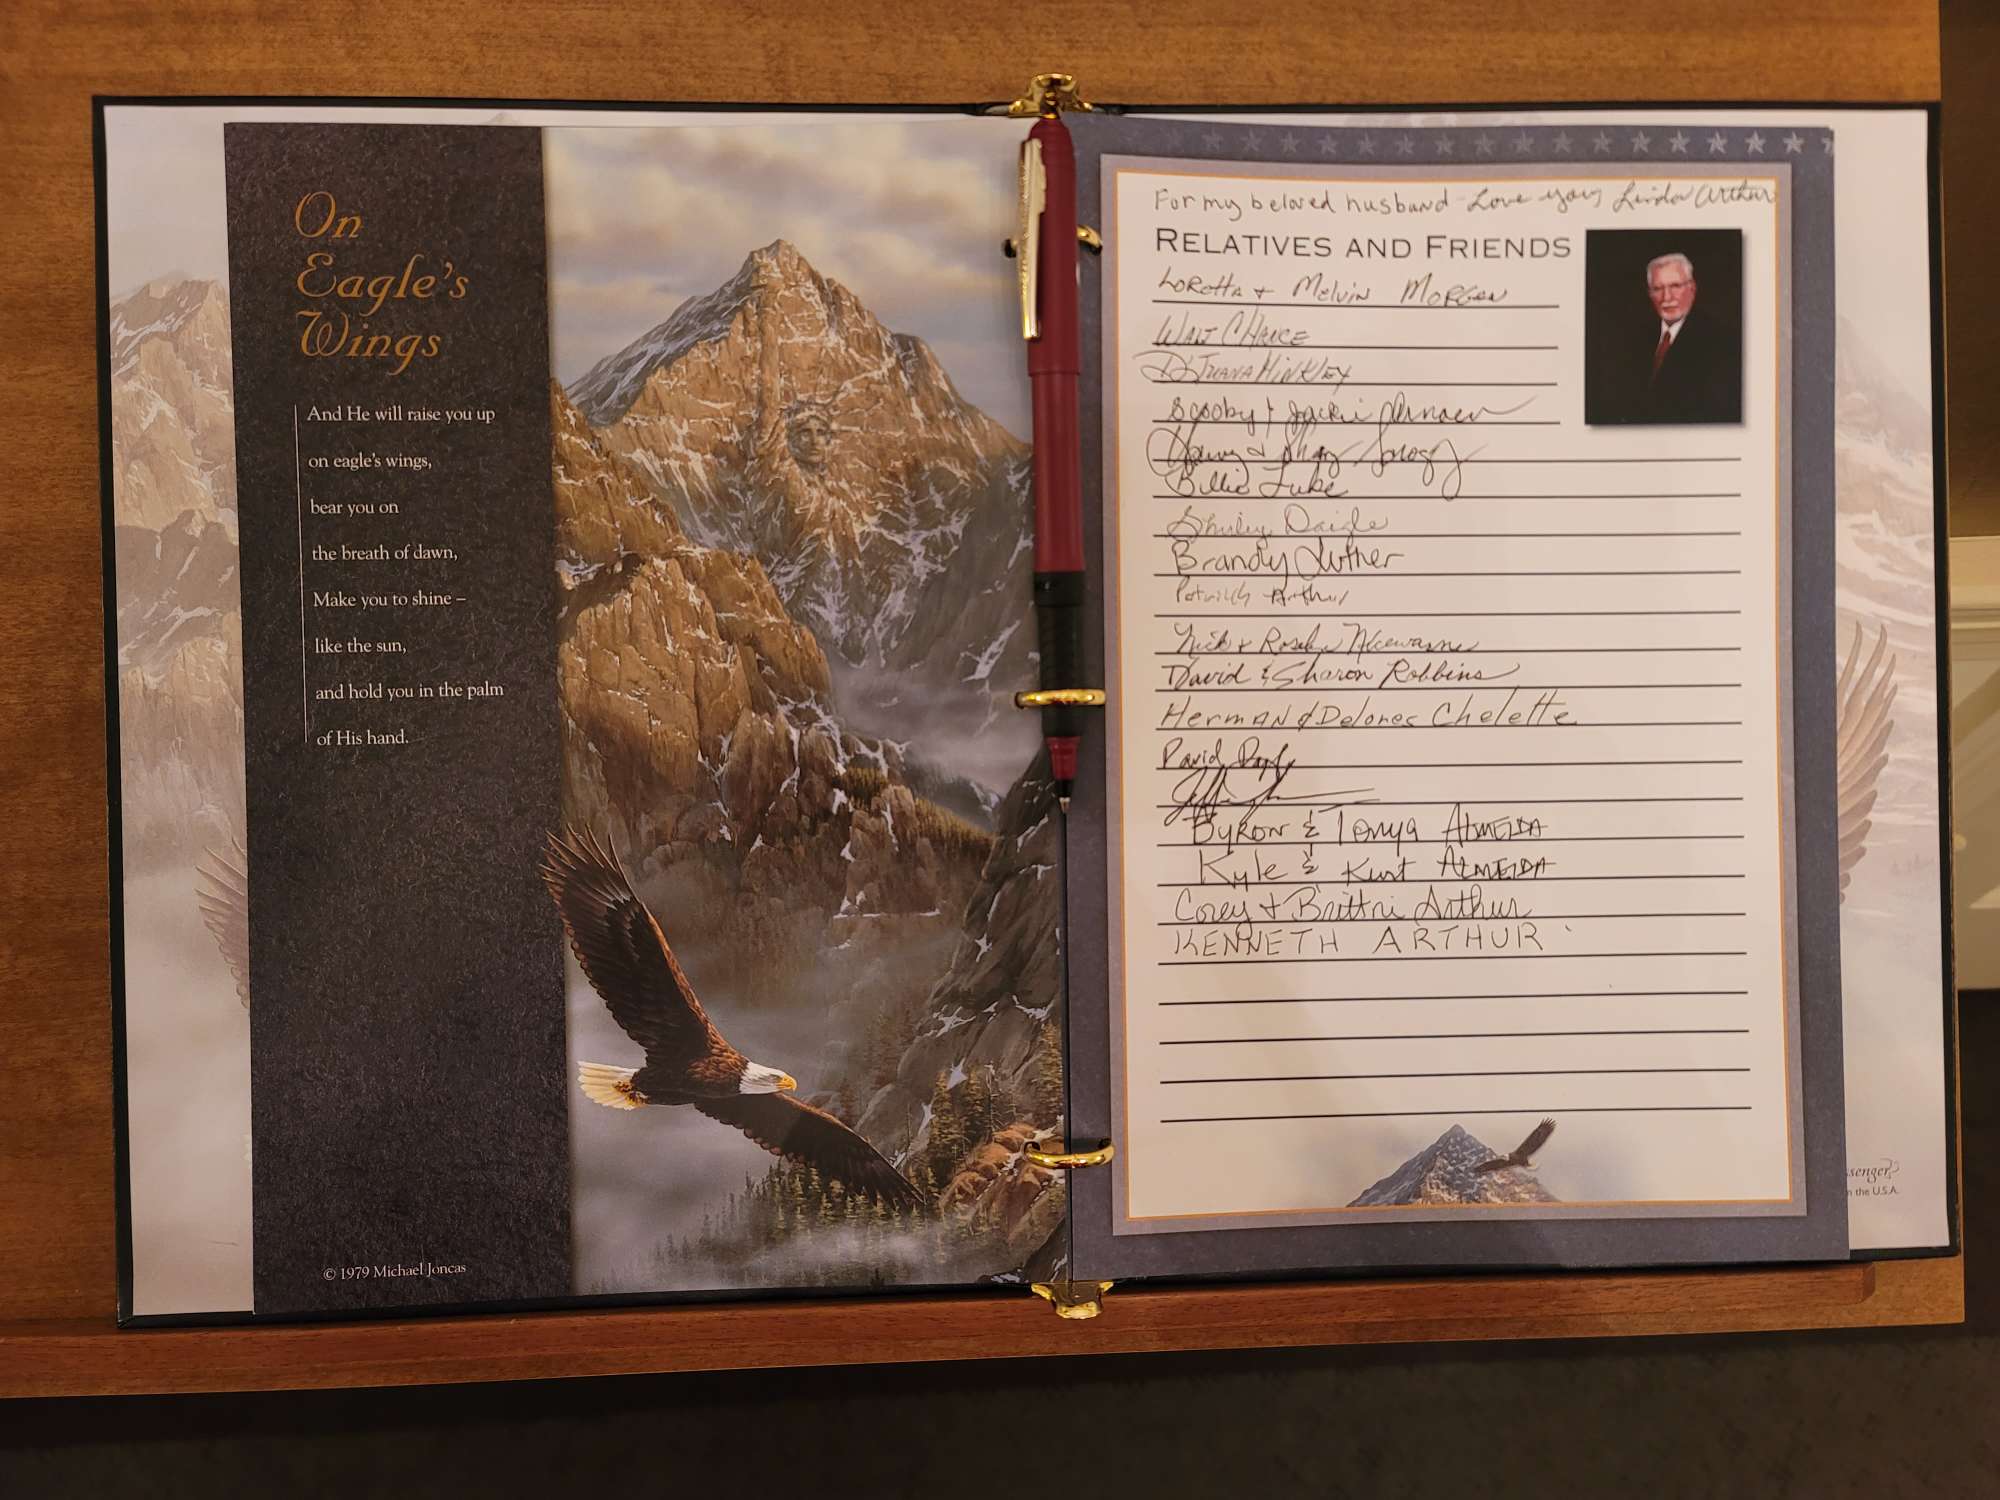 On
Eagle's
Wings
And He will raise you up
on eagle's wings,
bear you on
the breath of dawn,
Make you to shine –
like the sun,
and hold you in the palm
of His hand.
© 1979 Michael Joncas
For my beloved husband - Love you, Linda Arthur
RELATIVES AND FRIENDS
Loretta + Melvin Morgan
Walt
D'Juana Hinkley
Scooby & Jackie
&
Billie Luke
Shirley Daigle
Brandy Luther
Arthur
Nick +
David & Sharon Robbins
Herman & Delores Chelette
David
Byron & Tonya ALMEIDA
Kyle & Kurt ALMEIDA
Corey + Brittni Arthur
KENNETH ARTHUR
senger
n the U.S.A.